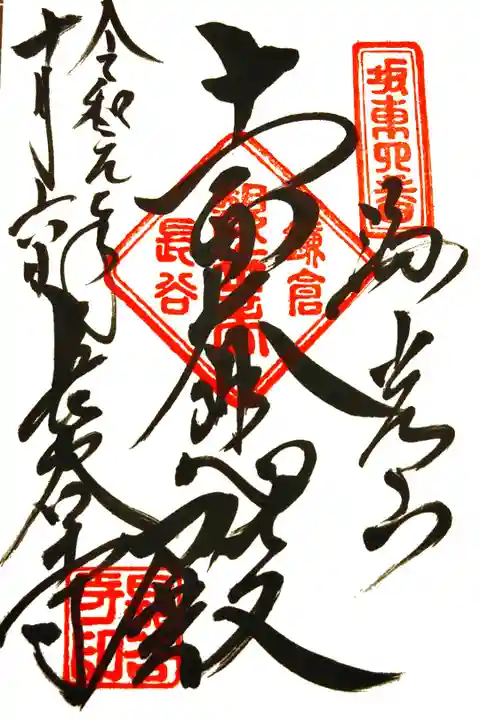 坂東四番
海光山
十一面大悲殿
鎌倉
長谷
令和元年
十月
長谷寺
長谷寺印